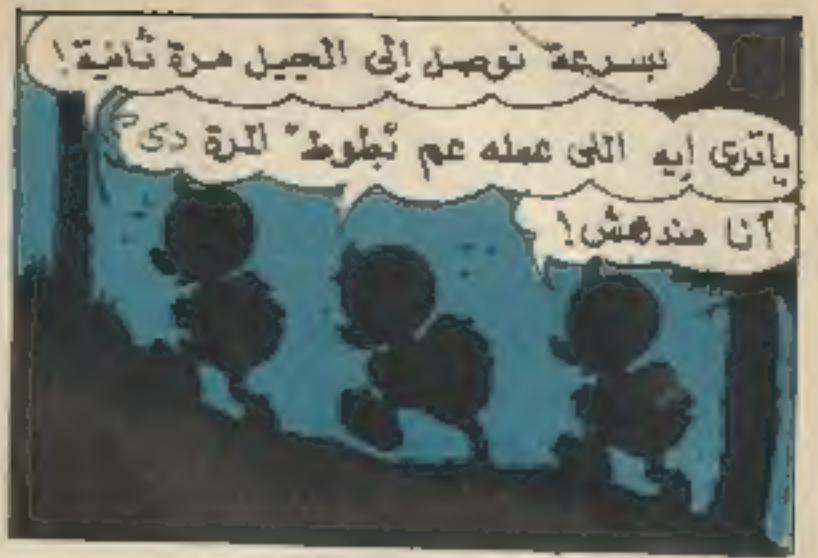 بسرعة نوصل إلى الجبل مرة ثانية!
ياترى إيه اللى عمله عم "بطوط" المرة دى؟
أنا مندهش!